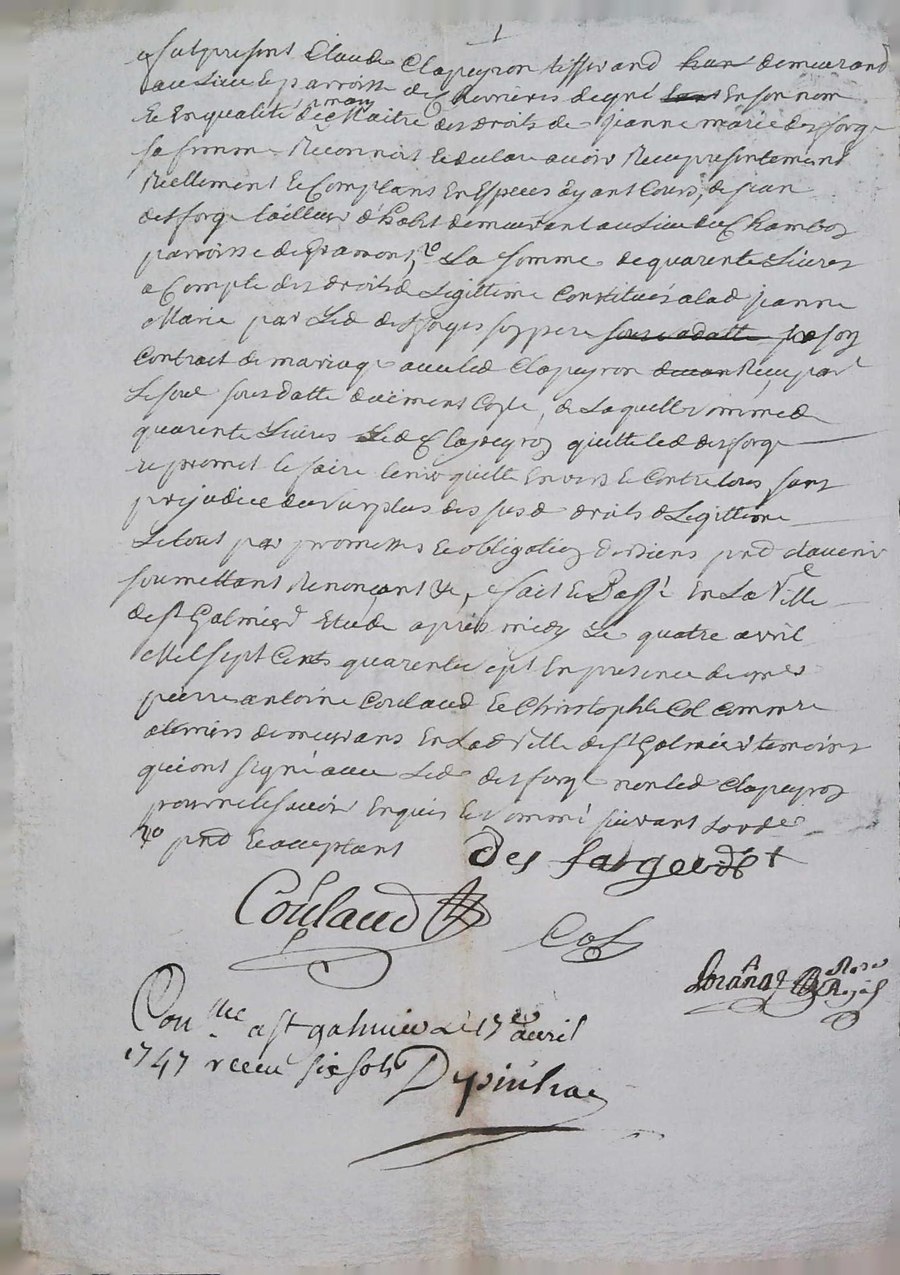 1
a fut present Claude Clapeyron tisserand demeurand
au Lieu & parroisse de chevrieres de gré En son nom
Et En qualité de Maitre des Droits de Jeanne marie desforge
sa femme Reconnoit & declare avoir Receu presentement
Reellement & Comptans En Especes ayant Cours, de jean
desforge tailleur d'habit demeurant au Lieu du Chambos
parroisse de gramont, La somme de quarente Livres
a Compte des droits de Legittime Constitués a lad jeanne
Marie par Led desforges son pere son
Contrat de mariage avec led Clapeyron Receu par
Le soub sous datte duement Colé, de Laquelle somme de
quarente Livres Led Clapeyron quitte led desforge
& promet le faire tenir quitte Envers & Contre tous sans
prejudice du surplus des susd droits de Legittime
Le tout par promesses & obligation de biens pnd davenir
soumettant Renonçant &c, fait & Passé En La Ville
de st Galmier Etude apres midy Le quatre avril
Mil sept Cents quarente sept En presence de mes
pierre antoine Coulaud & Christophle Col
demeurans En Lad ville de st Galmier temoins
qui ont signé avec Led desforge non led Clapeyron
pour ne le savoir Enquis & sommé suivant Lord
pnd & acceptant
Coulaud
Col
Con lle a st galmier Le 17 avril
1747 receu six sols